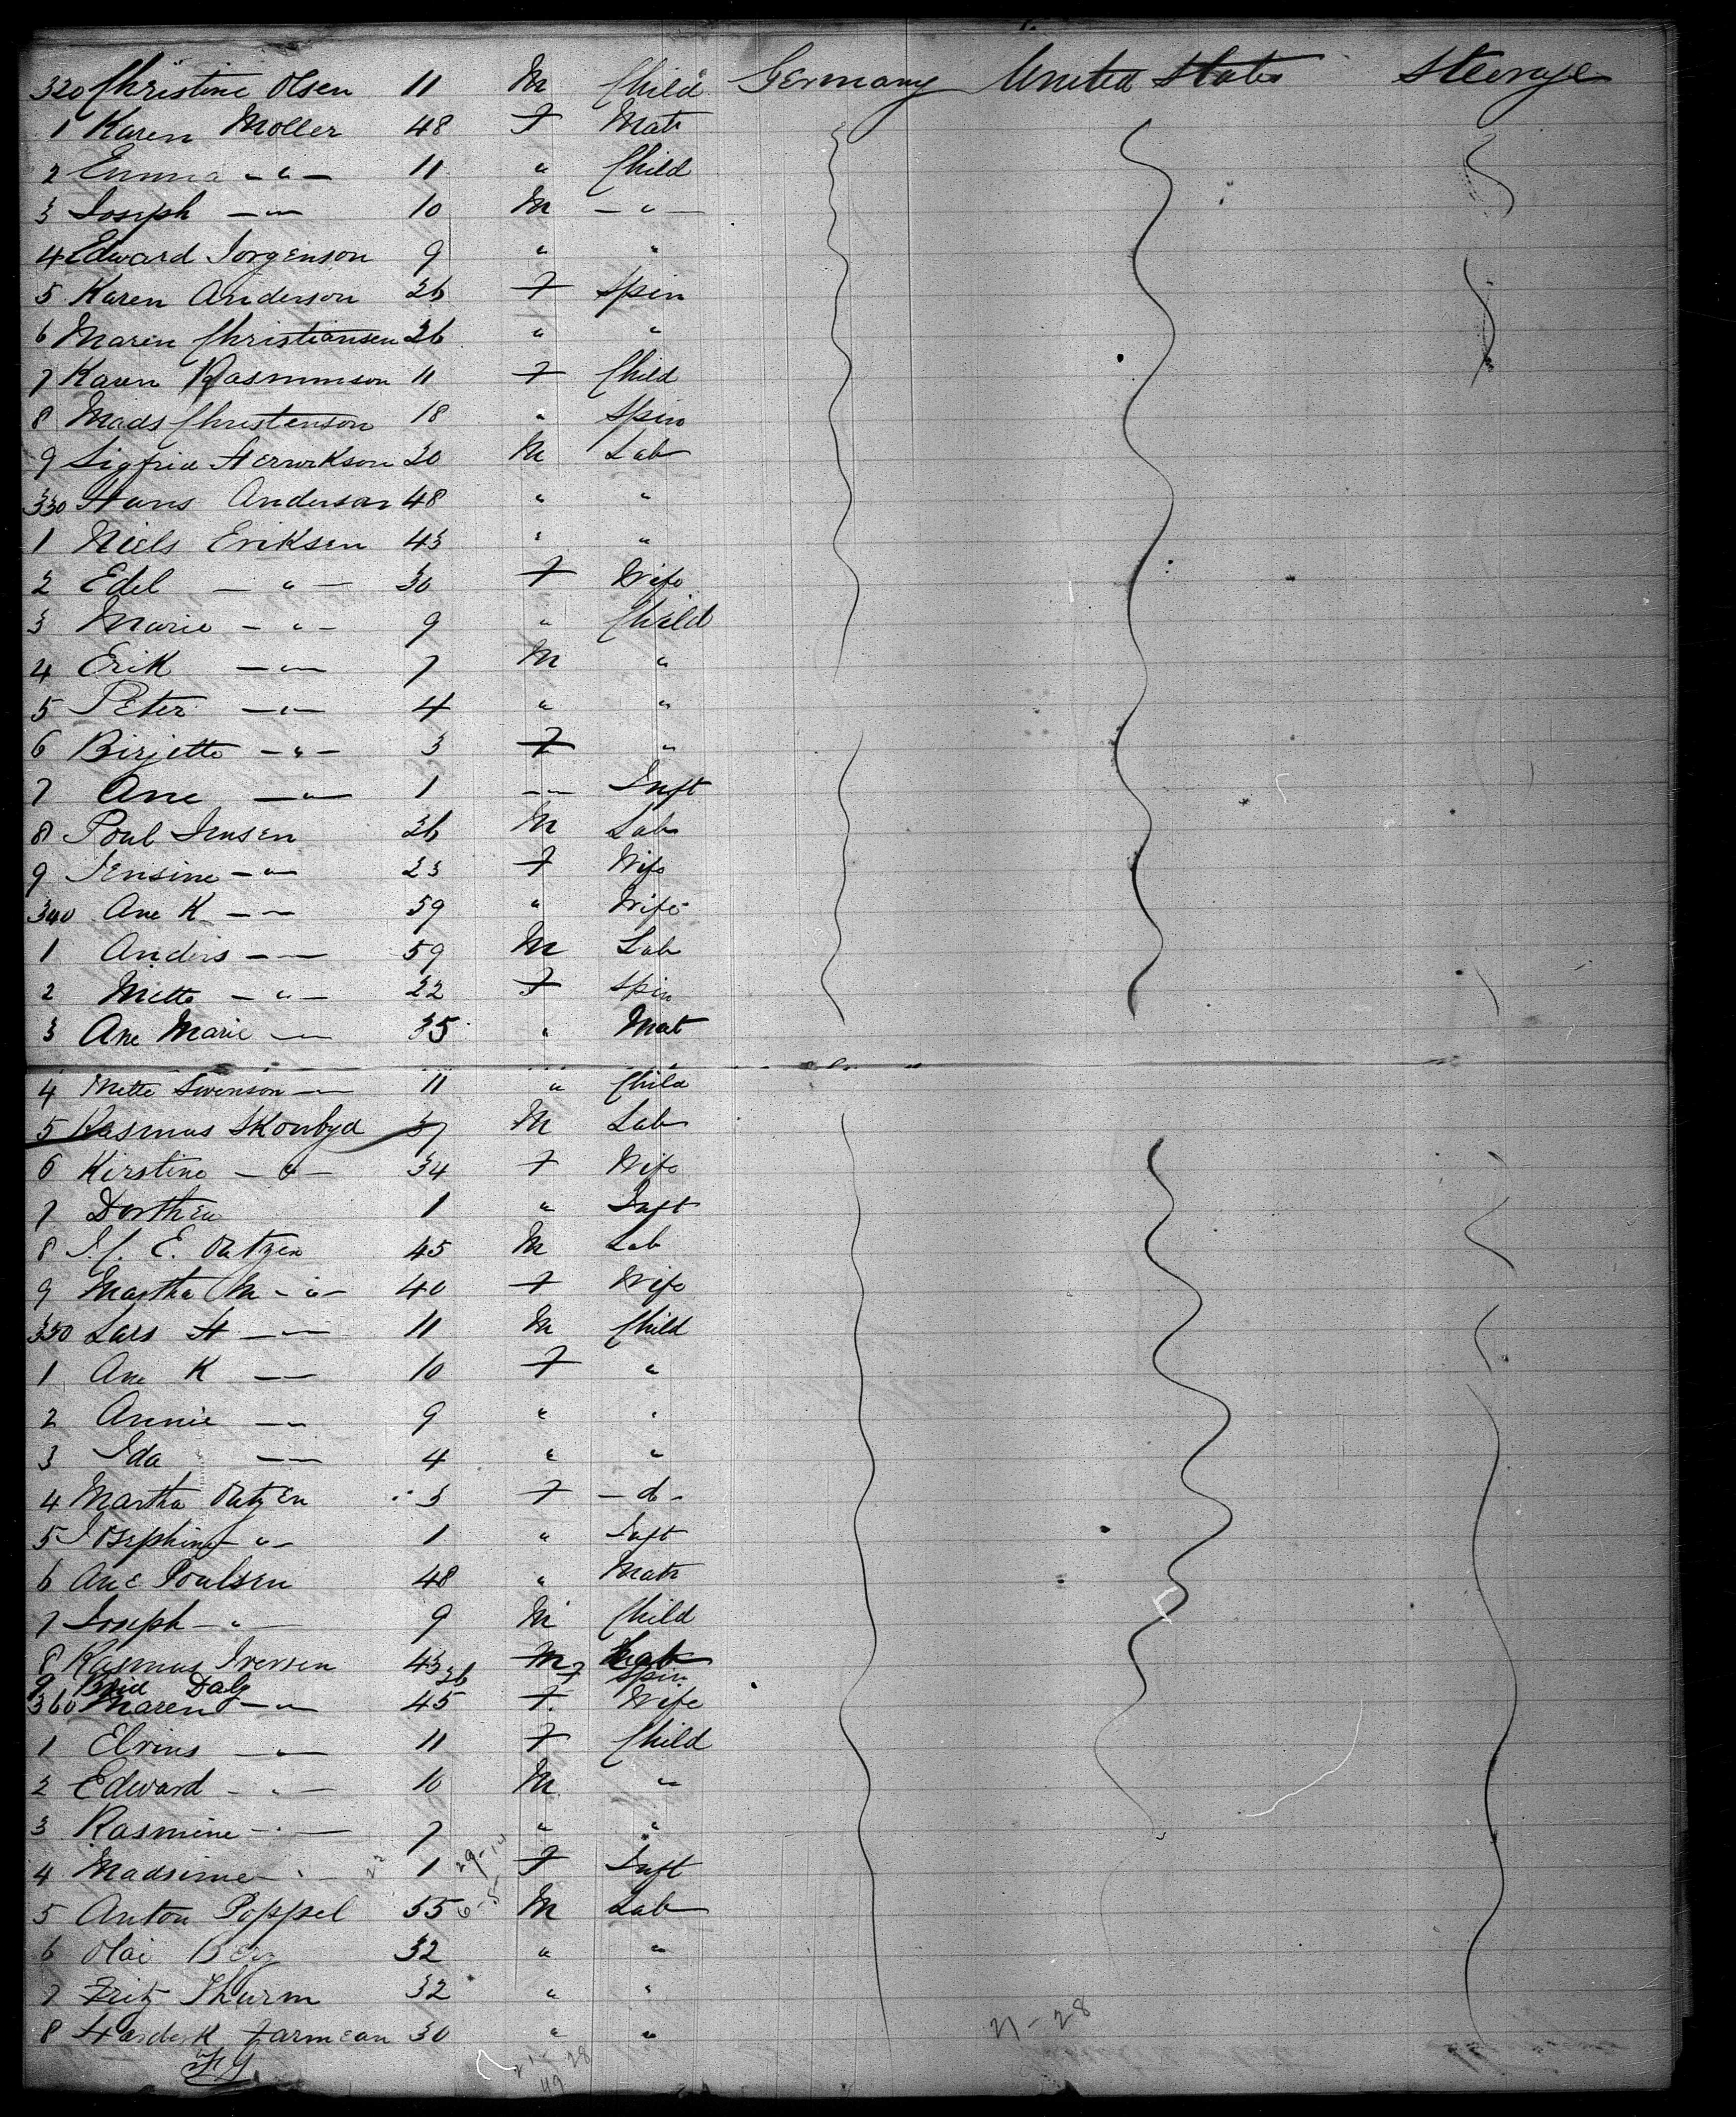 320 Christine Olsen 11 M Child Germany United States Steerage
1 Karen Moller 48 F Matr
2 Emma - " - 11 " Child
3 Joseph - " - 10 M - " -
4 Edward Jorgenson 9 " "
5 Karen Anderson 26 F Spin
6 Maren Christiansen 26 " "
7 Karen Rasmmson 11 F Child
8 Mads Christenson 18 " Spin
9 Sigfrid 20 M Lab
330 Hans Anderson 48 " "
1 Niels Eriksen 43 " "
2 Edel - " - 30 F Wife
3 Marie - " - 9 " Child
4 Erik - " - 7 M "
5 Peter - " - 4 " "
6 Birjette - " - 3 F "
7 Ane - " - 1 - " - Inft
8 Poul Jensen 26 M Lab
9 Jensine - " - 23 F Wife
340 Ane K - " - 59 " Wife
1 Anders - " - 59 M Lab
2 Mette - " - 22 F Spin
3 Ane Marie - " - 35 " Mat
4 Mette Swenson - " - 11 " Child
5 Rasmus Skoubyd 37 M Lab
6 Kirstine - " - 34 F Wife
7 Dorthea 1 " Inft
8 E. Oatzen 45 M Lab
9 Martha M - " - 40 F Wife
350 Lars H - " - 11 M Child
1 Ane K - " - 10 F "
2 Annie - " - 9 " "
3 Ida - " - 4 " "
4 Martha Oatzen 3 F - do -
5 Josephine - " - 1 " Inft
6 Ane Poulsen 48 " Matr
7 Joseph - " - 9 M Child
8 Rasmus Iversen 43 M Lab
9 Daly 26 F Spin
360 Maren - " - 45 F Wife
1 Elvins - " - 11 F Child
2 Edward - " - 10 M "
3 Rasmine - " - 7 " "
4 Madsine - " - 1 29-14 F Inft
5 Anton Poppel 55 6-5 M Lab
6 Olai Berg 32 " "
7 Fritz Thurm 32 " "
8 30 " "
21-28
28
49